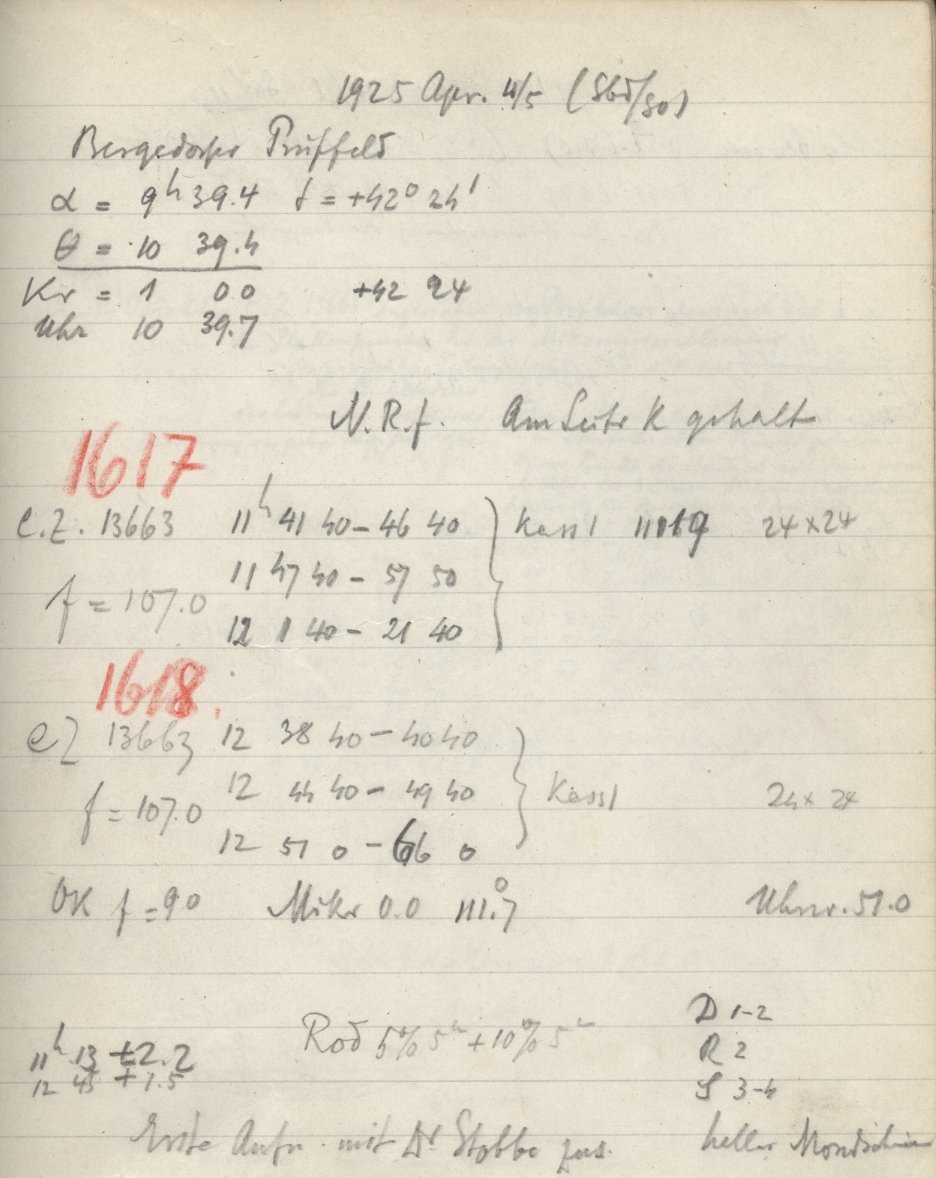 1925 Apr. 4/5 (Sbd/So)
Bergedorfer Prüffeld
α = 9h 39.4 δ = +42° 24'
θ = 10 39.4
Kr = 1 00 +42 24
Uhr 10 39.7
N.R.f. Am Leitr K gehalt
1617
e.Z. 13663 11h 41 40 – 46 40 Kass1 24×24
f = 107.0 11 47 40 – 57 50
12 1 40 – 21 40
1618.
eZ 13663 12 38 40 – 40 40
f = 107.0 12 44 40 – 49 40 Kass1 24×24
12 51 0 – 66 0
OK f = 90 Mikr 0.0 111.7° Uhrvr. 51.0
D 1-2
Rod 5% 5m + 10% 5m
11h 13 +2.2 R 2
12 45 +1.5 S 3-4
Erste Aufn. mit Dr Stobbe zus. heller Mondschein